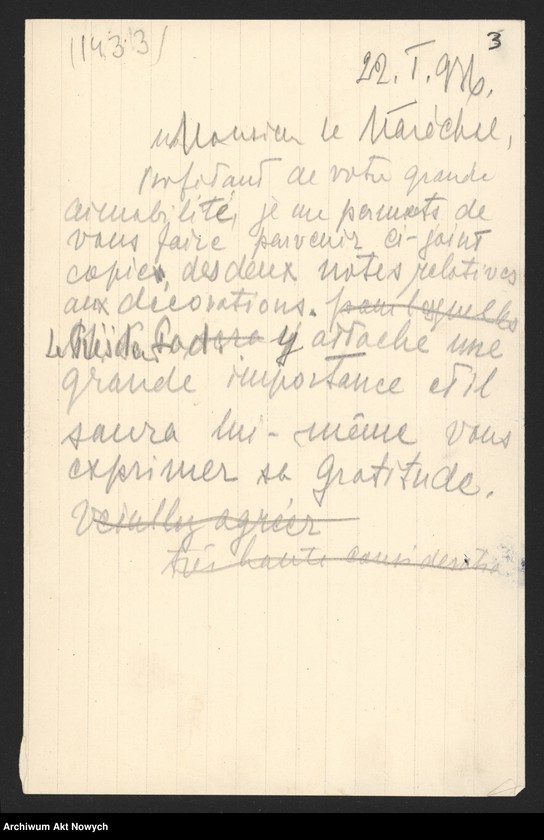 (1433)
3
22. I. 936.
Monsieur le Maréchal,
Profitant de votre grande
aimabilité, je me permets de
vous faire parvenir ci-joint
copies, des deux notes relatives
aux décorations. pour lesquelles
Le Président y attache une
grande importance et il
saura lui-même vous
exprimer sa gratitude.
Veuillez agréer
très haute considération
Archiwum Akt Nowych